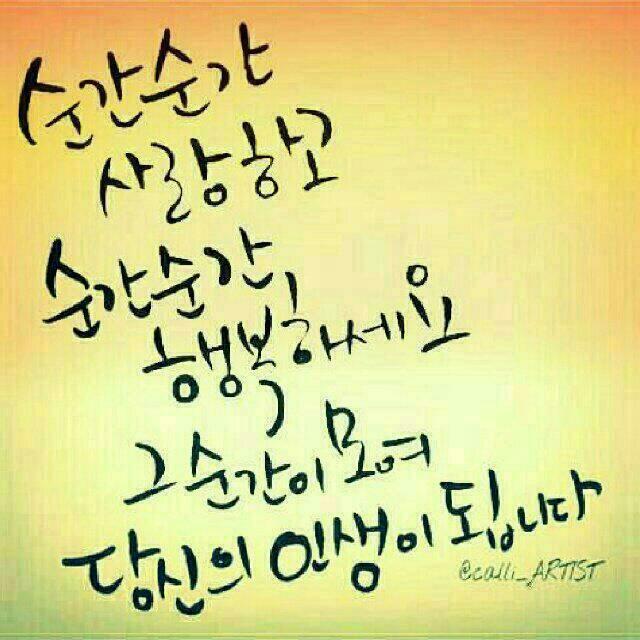 순간순간
사랑하고
순간순간
행복하세요
그 순간이 모여
당신의 인생이 됩니다
@calli_ARTIST